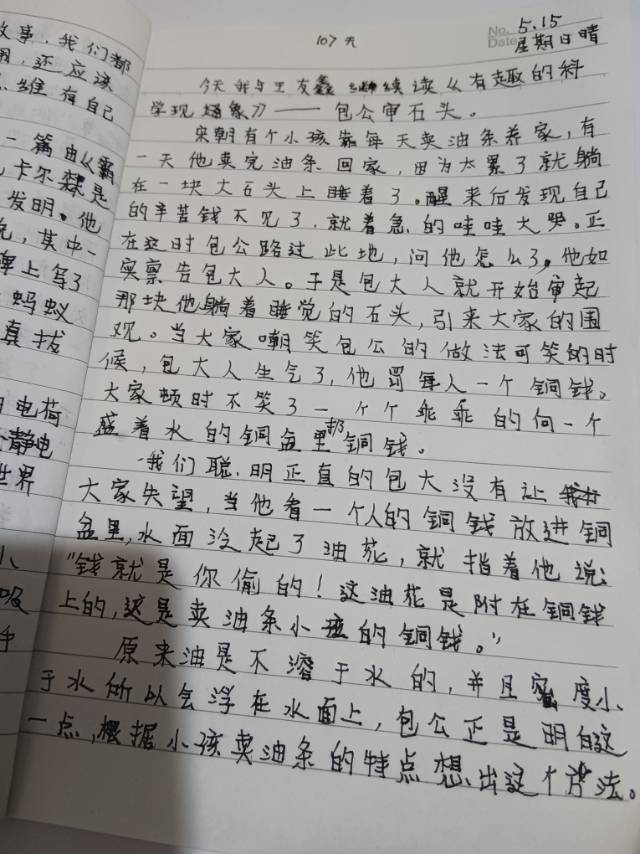 故事,我们都
用,还应该
维有自己
一篇由从
卡尔森是
发明。他
完,其中一
牌上写了
蚂蚁
真拔
电荷
静电
世界
小
吸
手
107天
No. 5.15
Date 星期日晴
今天我与王友鑫继续读《有趣的科
学现场象》——包公审石头。
宋朝有个小孩靠每天卖油条养家,有
一天他卖完油条回家,因为太累了就躺
在一块大石头上睡着了。醒来后发现自己
的辛苦钱不见了,就着急的哇哇大哭。正
在这时包公路过此地,问他怎么了。他如
实禀告包大人。于是包大人就开始审起
那块他躺着睡觉的石头,引来大家的围
观。当大家嘲笑包公的做法可笑的时
候,包大人生气了,他罚每人一个铜钱。
大家顿时不笑了一个个乖乖的向一个
盛着水的铜盆里扔铜钱。
我们聪明正直的包大没有让
大家失望,当他看一个人的铜钱放进铜
盆里,水面泛起了油花,就指着他说:
“钱就是你偷的!这油花是附在铜钱
上的,这是卖油条小孩的铜钱。”
原来油是不溶于水的,并且密度小
于水所以会浮在水面上,包公正是明白这
一点,根据小孩卖油条的特点想出这个方法。